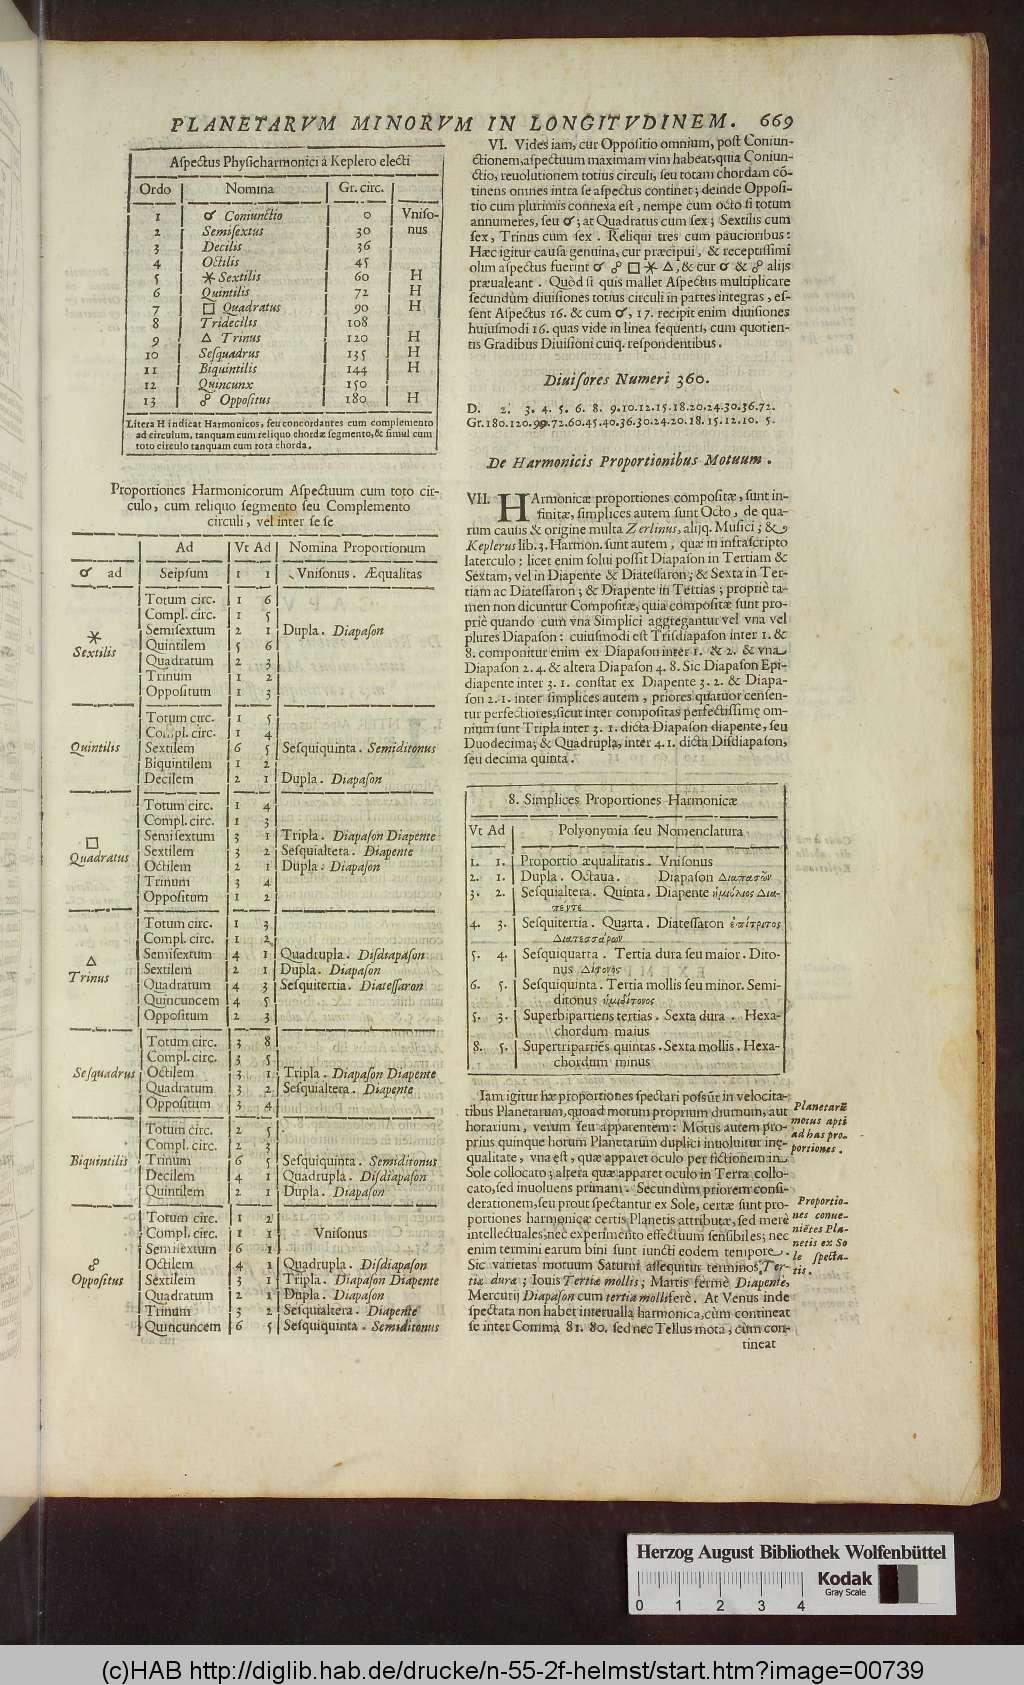 PLANETARVM MINORVM IN LONGITVDINEM. 669
Aſpectus Phyſicharmonici à Keplero electi
Ordo Nomina Gr. circ.
1 ☌ Coniunctio 0 Vniſo-
2 Semiſextus 30 nus
3 Decilis 36
4 Octilis 45
5 ⚹ Sextilis 60 H
6 Quintilis 72 H
7 □ Quadratus 90 H
8 Tridecilis 108
9 △ Trinus 120 H
10 Seſquadrus 135 H
11 Biquintilis 144 H
12 Quincunx 150
13 ☍ Oppoſitus 180 H
Litera H indicat Harmonicos, ſeu concordantes cum complemento
ad circulum, tanquam cum reliquo chordæ ſegmento, & ſimul cum
toto circulo tanquam cum tota chorda.
Proportiones Harmonicorum Aſpectuum cum toto cir-
culo, cum reliquo ſegmento ſeu Complemento
circuli, vel inter ſe ſe
Ad Vt Ad Nomina Proportionum
☌ ad Seipſum 1 1 Vniſonus. Æqualitas
⚹ Sextilis
Totum circ. 1 6
Compl. circ. 1 5
Semiſextum 2 1 Dupla. Diapaſon
Quintilem 5 6
Quadratum 2 3
Trinum 1 2
Oppoſitum 1 3
Quintilis
Totum circ. 1 5
Compl. circ. 1 4
Sextilem 6 5 Seſquiquinta. Semiditonus
Biquintilem 1 2
Decilem 2 1 Dupla. Diapaſon
□ Quadratus
Totum circ. 1 4
Compl. circ. 1 3
Semiſextum 3 1 Tripla. Diapaſon Diapente
Sextilem 3 2 Seſquialtera. Diapente
Octilem 2 1 Dupla. Diapaſon
Trinum 3 4
Oppoſitum 1 2
△ Trinus
Totum circ. 1 3
Compl. circ. 1 2
Semiſextum 4 1 Quadrupla. Diſdiapaſon
Sextilem 2 1 Dupla. Diapaſon
Quadratum 4 3 Seſquitertia. Diateſſaron
Quincuncem 4 5
Oppoſitum 2 3
Seſquadrus
Totum circ. 3 8
Compl. circ. 3 5
Octilem 3 1 Tripla. Diapaſon Diapente
Quadratum 3 2 Seſquialtera. Diapente
Oppoſitum 3 4
Biquintilis
Totum circ. 2 5
Compl. circ. 2 3
Trinum 6 5 Seſquiquinta. Semiditonus
Decilem 4 1 Quadrupla. Diſdiapaſon
Quintilem 2 1 Dupla. Diapaſon
☍ Oppoſitus
Totum circ. 1 2
Compl. circ. 1 1 Vniſonus
Semiſextum 6 1
Octilem 4 1 Quadrupla. Diſdiapaſon
Sextilem 3 1 Tripla. Diapaſon Diapente
Quadratum 2 1 Dupla. Diapaſon
Trinum 3 2 Seſquialtera. Diapente
Quincuncem 6 5 Seſquiquinta. Semiditonus
VI. Vides iam, cur Oppoſitio omnium, poſt Coniun-
ctionem, aſpectuum maximam vim habeat, quia Coniun-
ctio, reuolutionem totius circuli, ſeu totam chordam cō-
tinens omnes intra ſe aſpectus continet; deinde Oppoſi-
tio cum plurimis connexa eſt, nempe cum octo ſi totum
annumeres, ſeu ☌; at Quadratus cum ſex; Sextilis cum
ſex, Trinus cum ſex. Reliqui tres cum paucioribus:
Hæc igitur cauſa genuina, cur præcipui, & receptiſſimi
olim aſpectus fuerint ☌ ☍ □ ⚹ △, & cur ☌ & ☍ alijs
præualeant. Quòd ſi quis mallet Aſpectus multiplicare
ſecundùm diuiſiones totius circuli in partes integras, eſ-
ſent Aſpectus 16. & cum ☌, 17. recipit enim diuiſiones
huiuſmodi 16. quas vide in linea ſequenti, cum quotien-
tis Gradibus Diuiſioni cuiq. reſpondentibus.
Diuiſores Numeri 360.
D. 2. 3. 4. 5. 6. 8. 9. 10. 12. 15. 18. 20. 24. 30. 36. 72.
Gr. 180. 120. 90. 72. 60. 45. 40. 36. 30. 24. 20. 18. 15. 12. 10. 5.
De Harmonicis Proportionibus Motuum.
VII. HArmonicæ proportiones compoſitæ, ſunt in-
finitæ, ſimplices autem ſunt Octo, de qua-
rum cauſis & origine multa Zerlinus, alijq. Muſici; &
Keplerus lib. 3. Harmon. ſunt autem, quæ in infraſcripto
laterculo: licet enim ſolui poſſit Diapaſon in Tertiam &
Sextam, vel in Diapente & Diateſſaron; & Sexta in Ter-
tiam ac Diateſſaron; & Diapente in Tertias; propriè ta-
men non dicuntur Compoſitæ, quia compoſitæ ſunt pro-
priè quando cum vna Simplici aggregantur vel vna vel
plures Diapaſon: cuiuſmodi eſt Triſdiapaſon inter 1. &
8. componitur enim ex Diapaſon inter 1. & 2. & vna
Diapaſon 2. 4. & altera Diapaſon 4. 8. Sic Diapaſon Epi-
diapente inter 3. 1. conſtat ex Diapente 3. 2. & Diapa-
ſon 2. 1. inter ſimplices autem, priores quatuor cenſen-
tur perfectiores, ſicut inter compoſitas perfectiſſimę om-
nium ſunt Tripla inter 3. 1. dicta Diapaſon diapente, ſeu
Duodecima; & Quadrupla, inter 4. 1. dicta Diſdiapaſon,
ſeu decima quinta.
8. Simplices Proportiones Harmonicæ
Vt Ad Polyonymia ſeu Nomenclatura
1. 1. Proportio æqualitatis. Vniſonus
2. 1. Dupla. Octaua. Diapaſon Διαπασῶν
3. 2. Seſquialtera. Quinta. Diapente ἡμιόλιος Δια-
πέντε
4. 3. Seſquitertia. Quarta. Diateſſaron ἐπίτριτος
Διατεσσάρων
5. 4. Seſquiquarta. Tertia dura ſeu maior. Dito-
nus Δίτονος
6. 5. Seſquiquinta. Tertia mollis ſeu minor. Semi-
ditonus ἡμιδίτονος
5. 3. Superbipartiens tertias. Sexta dura. Hexa-
chordum maius
8. 5. Supertripartiēs quintas. Sexta mollis. Hexa-
chordum minus
Iam igitur hæ proportiones ſpectari poſsūt in velocita-
tibus Planetarum, quoad motum proprium diurnum, aut
horarium, verum ſeu apparentem: Motus autem pro-
prius quinque horum Planetarum duplici inuoluitur inę-
qualitate, vna eſt, quæ apparet oculo per fictionem in
Sole collocato; altera quæ apparet oculo in Terra collo-
cato, ſed inuoluens primam. Secundùm priorem conſi-
derationem, ſeu prout ſpectantur ex Sole, certæ ſunt pro-
portiones harmonicæ certis Planetis attributæ, ſed merè
intellectuales, nec experimento effectuum ſenſibiles; nec
enim termini earum bini ſunt iuncti eodem tempore.
Sic varietas motuum Saturni aſſequitur terminos Ter-
tiæ duræ; Iouis Tertiæ mollis; Martis fermè Diapente,
Mercurij Diapaſon cum tertia molli ferè. At Venus inde
ſpectata non habet interualla harmonica, cùm contineat
ſe inter Comma 81. 80. ſed nec Tellus mota, cùm con-
tineat
Planetarū
motus apti
ad has pro-
portiones.
Proportio-
nes conue-
niētes Pla-
netis ex So
le ſpecta-
tis.
Herzog August Bibliothek Wolfenbüttel
Kodak
Gray Scale
0 1 2 3 4
(c)HAB http://diglib.hab.de/drucke/n-55-2f-helmst/start.htm?image=00739